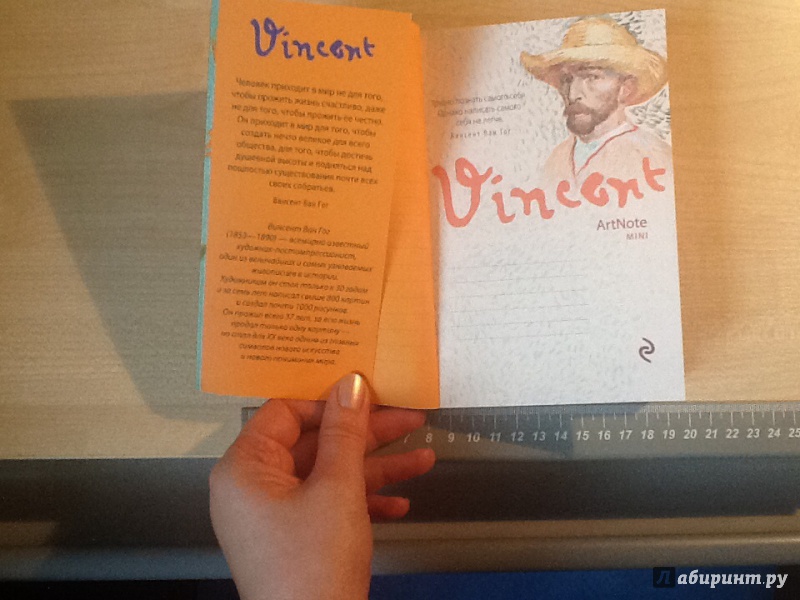 Vincent
Человек приходит в мир не для того,
чтобы прожить жизнь счастливо, даже
не для того, чтобы прожить её честно.
Он приходит в мир для того, чтобы
создать нечто великое для всего
общества, для того, чтобы достичь
душевной высоты и подняться над
пошлостью существования почти всех
своих собратьев.
Винсент Ван Гог
Винсент Ван Гог
(1853—1890) — всемирно известный
художник-постимпрессионист,
один из величайших и самых узнаваемых
живописцев в истории.
Художником он стал только к 30 годам
и за семь лет написал свыше 800 картин
и создал почти 1000 рисунков.
Он прожил всего 37 лет, за всю жизнь
продал только одну картину —
но стал для XX века одним из главных
символов нового искусства
и нового понимания мира.
познать самого себя.
Однако написать самого
себя не легче.
Винсент Ван Гог
Vincent
ArtNote
MINI
7 8 9 10 11 12 13 14 15 16 17 18 19 20 21 22 23 24 25
Лабиринт.ру